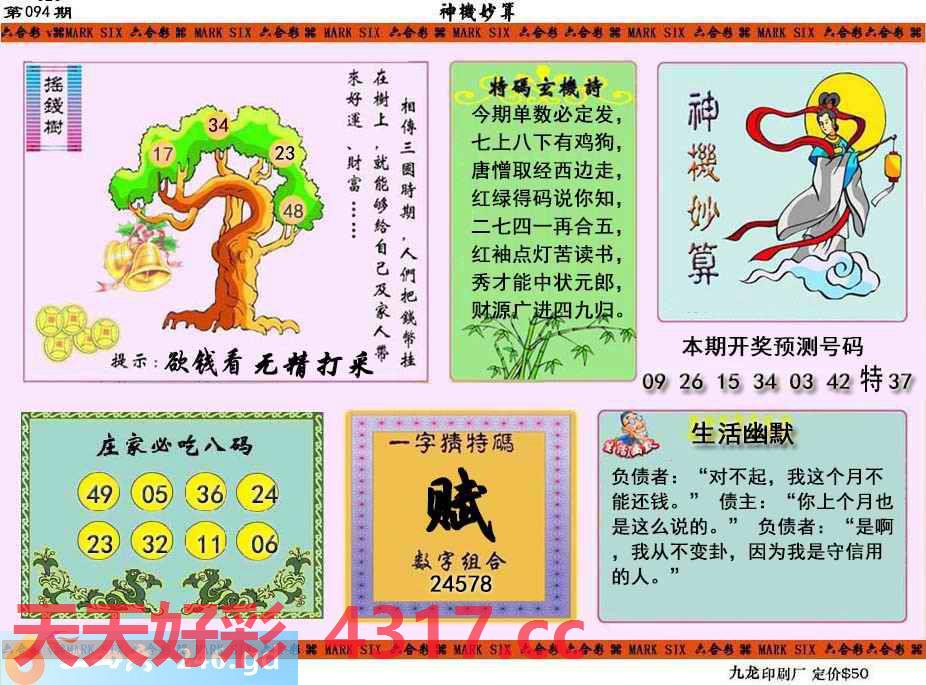 第094期
神機妙算
六合彩 MARK SIX 六合彩 MARK SIX 六合彩 MARK SIX 六合彩 MARK SIX 六合彩 六合彩 MARK SIX 六合彩 MARK SIX 六合彩六合彩
搖錢樹
相傳三國時期,人們把錢幣挂
在樹上,就能够給自己及家人帶
來好運、財富……
34
17
23
48
提示:欲钱看 无精打采
特碼玄機詩
今期单数必定发，
七上八下有鸡狗，
唐憎取经西边走，
红绿得码说你知，
二七四一再合五，
红袖点灯苦读书，
秀才能中状元郎，
财源广进四九归。
神機妙算
本期开奖预测号码
09 26 15 34 03 42 特37
庄家必吃八码
49 05 36 24
23 32 11 06
一字猜特碼
赋
数字组合
24578
生活幽默
生活幽默
负债者：“对不起，我这个月不
能还钱。” 债主：“你上个月也
是这么说的。” 负债者：“是啊
，我从不变卦，因为我是守信用
的人。”
天天好彩 4317.cc
六合彩 MARK SIX 六合彩 MARK SIX 六合彩 MARK SIX 六合彩 MARK SIX 六合彩 六合彩 MARK SIX 六合彩 MARK SIX 六合彩六合彩
九龙印刷厂 定价$50